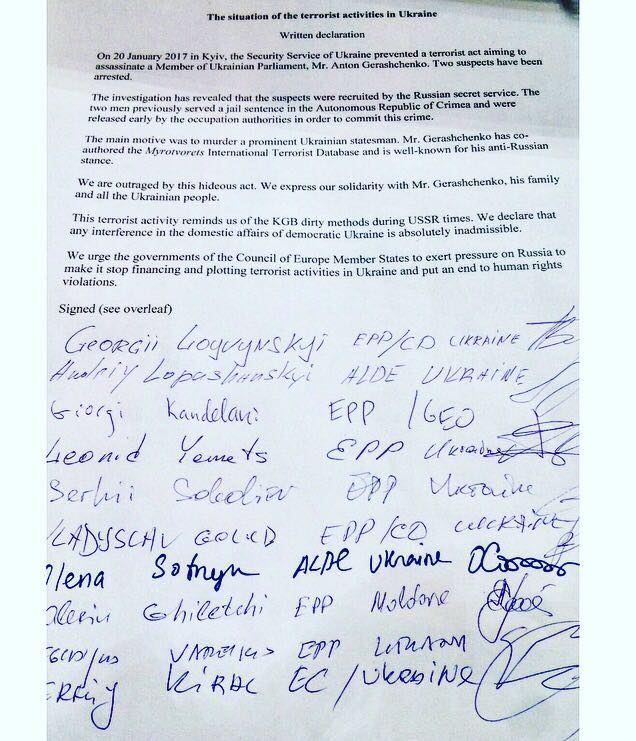 The situation of the terrorist activities in Ukraine
Written declaration
On 20 January 2017 in Kyiv, the Security Service of Ukraine prevented a terrorist act aiming to
assassinate a Member of Ukrainian Parliament, Mr. Anton Gerashchenko. Two suspects have been
arrested.
The investigation has revealed that the suspects were recruited by the Russian secret service. The
two men previously served a jail sentence in the Autonomous Republic of Crimea and were
released early by the occupation authorities in order to commit this crime.
The main motive was to murder a prominent Ukrainian statesman. Mr. Gerashchenko has co-
authored the Myrotvorets International Terrorist Database and is well-known for his anti-Russian
stance.
We are outraged by this hideous act. We express our solidarity with Mr. Gerashchenko, his family
and all the Ukrainian people.
This terrorist activity reminds us of the KGB dirty methods during USSR times. We declare that
any interference in the domestic affairs of democratic Ukraine is absolutely inadmissible.
We urge the governments of the Council of Europe Member States to exert pressure on Russia to
make it stop financing and plotting terrorist activities in Ukraine and put an end to human rights
violations.
Signed (see overleaf)
GEORGII Logvynskyi EPP/CD UKRAINE
Andriy Lopushanskyi ALDE UKRAINE
Giorgi Kandelaki EPP /GEO
Leonid Yemets EPP Ukraine
Serhii Sobolev EPP Ukraine
EPP/CD UKRAINE
lena Sotnyk ALDE Ukraine
Ghiletchi EPP Moldova
VAREIKIS EPP
KIRAL EC / UKRAINE